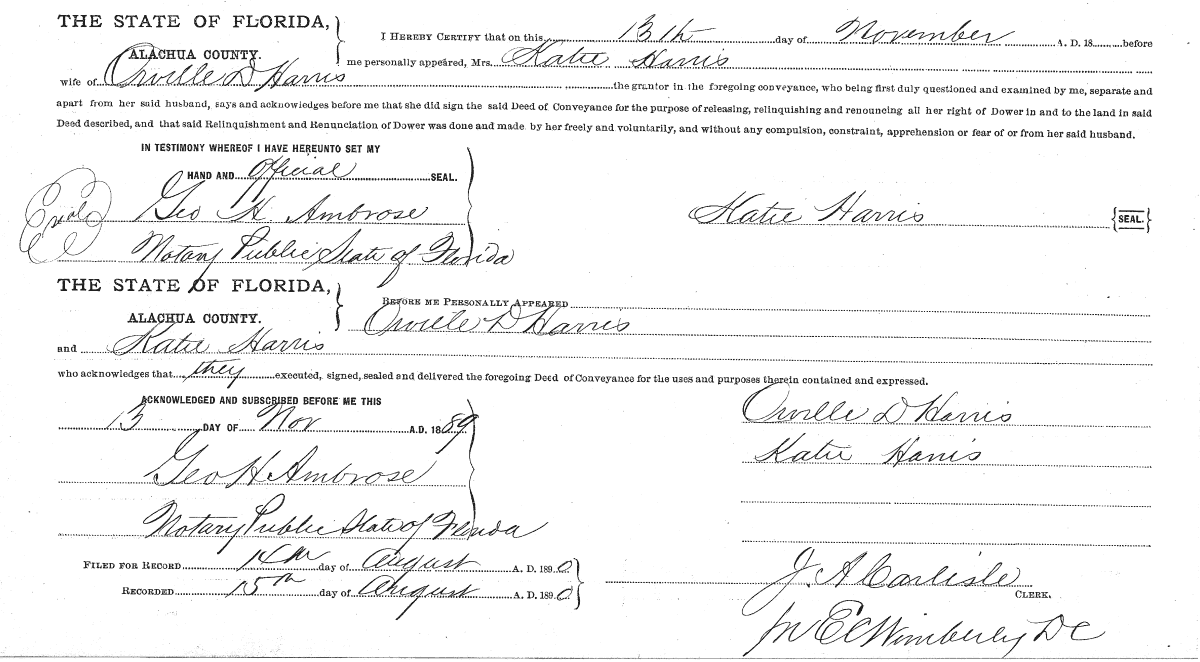 THE STATE OF FLORIDA,
ALACHUA COUNTY.
I HEREBY CERTIFY that on this 13th day of November A. D. 18 before
me personally appeared, Mrs. Katie Harris
wife of Orville D Harris the grantor in the foregoing conveyance, who being first duly questioned and examined by me, separate and
apart from her said husband, says and acknowledges before me that she did sign the said Deed of Conveyance for the purpose of releasing, relinquishing and renouncing all her right of Dower in and to the land in said
Deed described, and that said Relinquishment and Renunciation of Dower was done and made by her freely and voluntarily, and without any compulsion, constraint, apprehension or fear of or from her said husband.
IN TESTIMONY WHEREOF I HAVE HEREUNTO SET MY
HAND AND official SEAL.
Seal
Geo H. Ambrose
Katie Harris {SEAL.}
Notary Public State of Florida
THE STATE OF FLORIDA,
ALACHUA COUNTY.
BEFORE ME PERSONALLY APPEARED
Orville D Harris
and Katie Harris
who acknowledges that they executed, signed, sealed and delivered the foregoing Deed of Conveyance for the uses and purposes therein contained and expressed.
ACKNOWLEDGED AND SUBSCRIBED BEFORE ME THIS
13 DAY OF Nov A.D. 1889
Orville D Harris
Katie Harris
Geo H Ambrose
Notary Public State of Florida
FILED FOR RECORD 14th day of August A. D. 1890
RECORDED 15th day of August A. D. 1890
J. A Carlisle
CLERK.
Wimberly DC